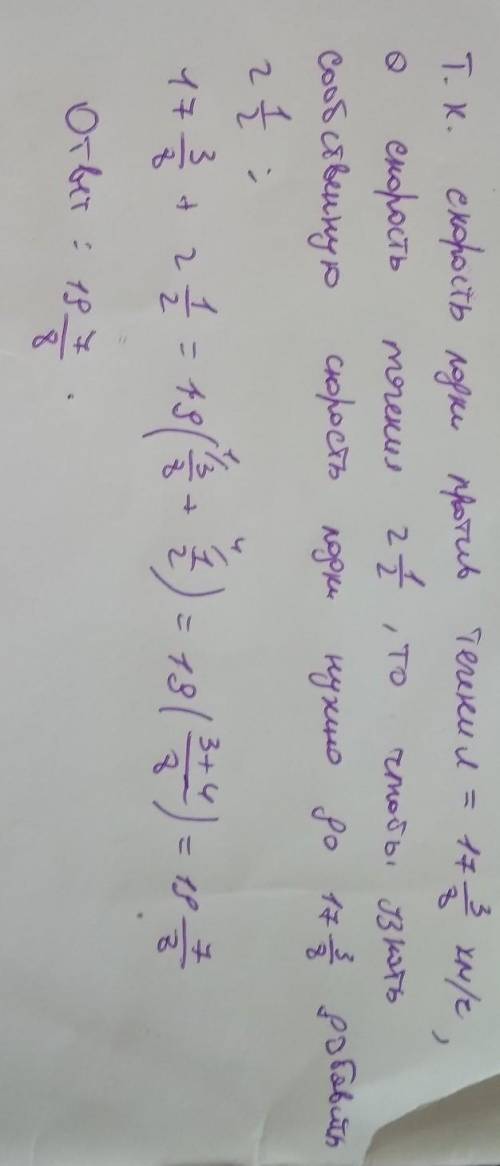 Т. к. скорость лодки против течения = 17 3/8 км/ч,
а скорость течения 2 1/2, то чтобы узнать
собственную скорость лодки нужно до 17 3/8 добавить
2 1/2 :
17 3/8 + 2 1/2 = 19(3/8 ^1/ + 1/2 ^4/) = 19(3+4/8) = 19 7/8
Ответ : 19 7/8.